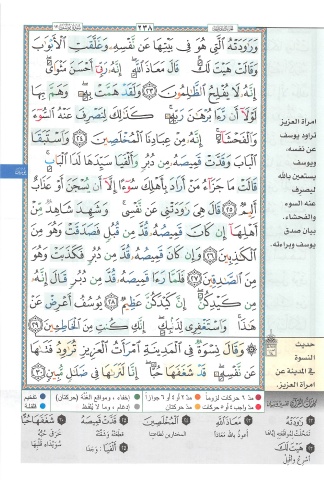 ٢٣٨
وَرَٰوَدَتْهُ ٱلَّتِى هُوَ فِى بَيْتِهَا عَن نَّفْسِهِۦ وَغَلَّقَتِ ٱلْأَبْوَٰبَ
وَقَالَتْ هَيْتَ لَكَ ۚ قَالَ مَعَاذَ ٱللَّهِ ۖ إِنَّهُۥ رَبِّىٓ أَحْسَنَ مَثْوَاىَ ۖ
إِنَّهُۥ لَا يُفْلِحُ ٱلظَّٰلِمُونَ ﴿٢٣﴾ وَلَقَدْ هَمَّتْ بِهِۦ ۖ وَهَمَّ بِهَا
لَوْلَآ أَن رَّءَا بُرْهَٰنَ رَبِّهِۦ ۚ كَذَٰلِكَ لِنَصْرِفَ عَنْهُ ٱلسُّوٓءَ
وَٱلْفَحْشَآءَ ۚ إِنَّهُۥ مِنْ عِبَادِنَا ٱلْمُخْلَصِينَ ﴿٢٤﴾ وَٱسْتَبَقَا
ٱلْبَابَ وَقَدَّتْ قَمِيصَهُۥ مِن دُبُرٍ وَأَلْفَيَا سَيِّدَهَا لَدَا ٱلْبَابِ ۚ
قَالَتْ مَا جَزَآءُ مَنْ أَرَادَ بِأَهْلِكَ سُوٓءًا إِلَّآ أَن يُسْجَنَ أَوْ عَذَابٌ
أَلِيمٌ ﴿٢٥﴾ قَالَ هِىَ رَٰوَدَتْنِى عَن نَّفْسِى ۚ وَشَهِدَ شَاهِدٌ مِّنْ
أَهْلِهَآ إِن كَانَ قَمِيصُهُۥ قُدَّ مِن قُبُلٍ فَصَدَقَتْ وَهُوَ مِنَ
ٱلْكَٰذِبِينَ ﴿٢٦﴾ وَإِن كَانَ قَمِيصُهُۥ قُدَّ مِن دُبُرٍ فَكَذَبَتْ وَهُوَ
مِنَ ٱلصَّٰدِقِينَ ﴿٢٧﴾ فَلَمَّا رَءَا قَمِيصَهُۥ قُدَّ مِن دُبُرٍ قَالَ إِنَّهُۥ
مِن كَيْدِكُنَّ ۖ إِنَّ كَيْدَكُنَّ عَظِيمٌ ﴿٢٨﴾ يُوسُفُ أَعْرِضْ عَنْ
هَٰذَا ۚ وَٱسْتَغْفِرِى لِذَنۢبِكِ ۖ إِنَّكِ كُنتِ مِنَ ٱلْخَاطِـِٔينَ ﴿٢٩﴾
وَقَالَ نِسْوَةٌ فِى ٱلْمَدِينَةِ ٱمْرَأَتُ ٱلْعَزِيزِ تُرَٰوِدُ فَتَىٰهَا
عَن نَّفْسِهِۦ ۖ قَدْ شَغَفَهَا حُبًّا ۖ إِنَّا لَنَرَىٰهَا فِى ضَلَٰلٍ مُّبِينٍ ﴿٣٠﴾
امرأة العزيز
تراود يوسف
عن نفسه.
ويوسف
يستعين بالله
ليصرف
عنه السوء
والفحشاء.
بيان صدق
يوسف وبراءته.
حديث
النسوة
في المدينة عن
امرأة العزيز.
مد ٦ حركات لزوما
مد ٢ أو ٤ أو ٦ جوازا
إخفاء، ومواقع الغنة (حركتان)
تفخيم
مد واجب ٤ أو ٥ حركات
مد حركتان
إدغام، وما لا يلفظ
قلقلة